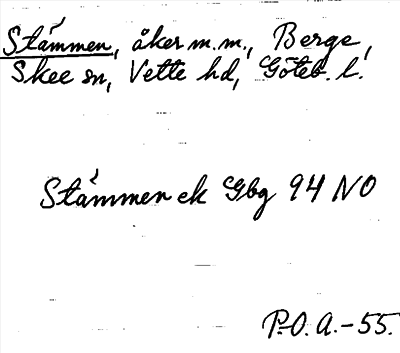 Stämmen, åker m.m., Berge,
Skee sn, Vette hd, Göteb. l.
Stämmen ek Gbg 94 NO
P.O.A.-55.